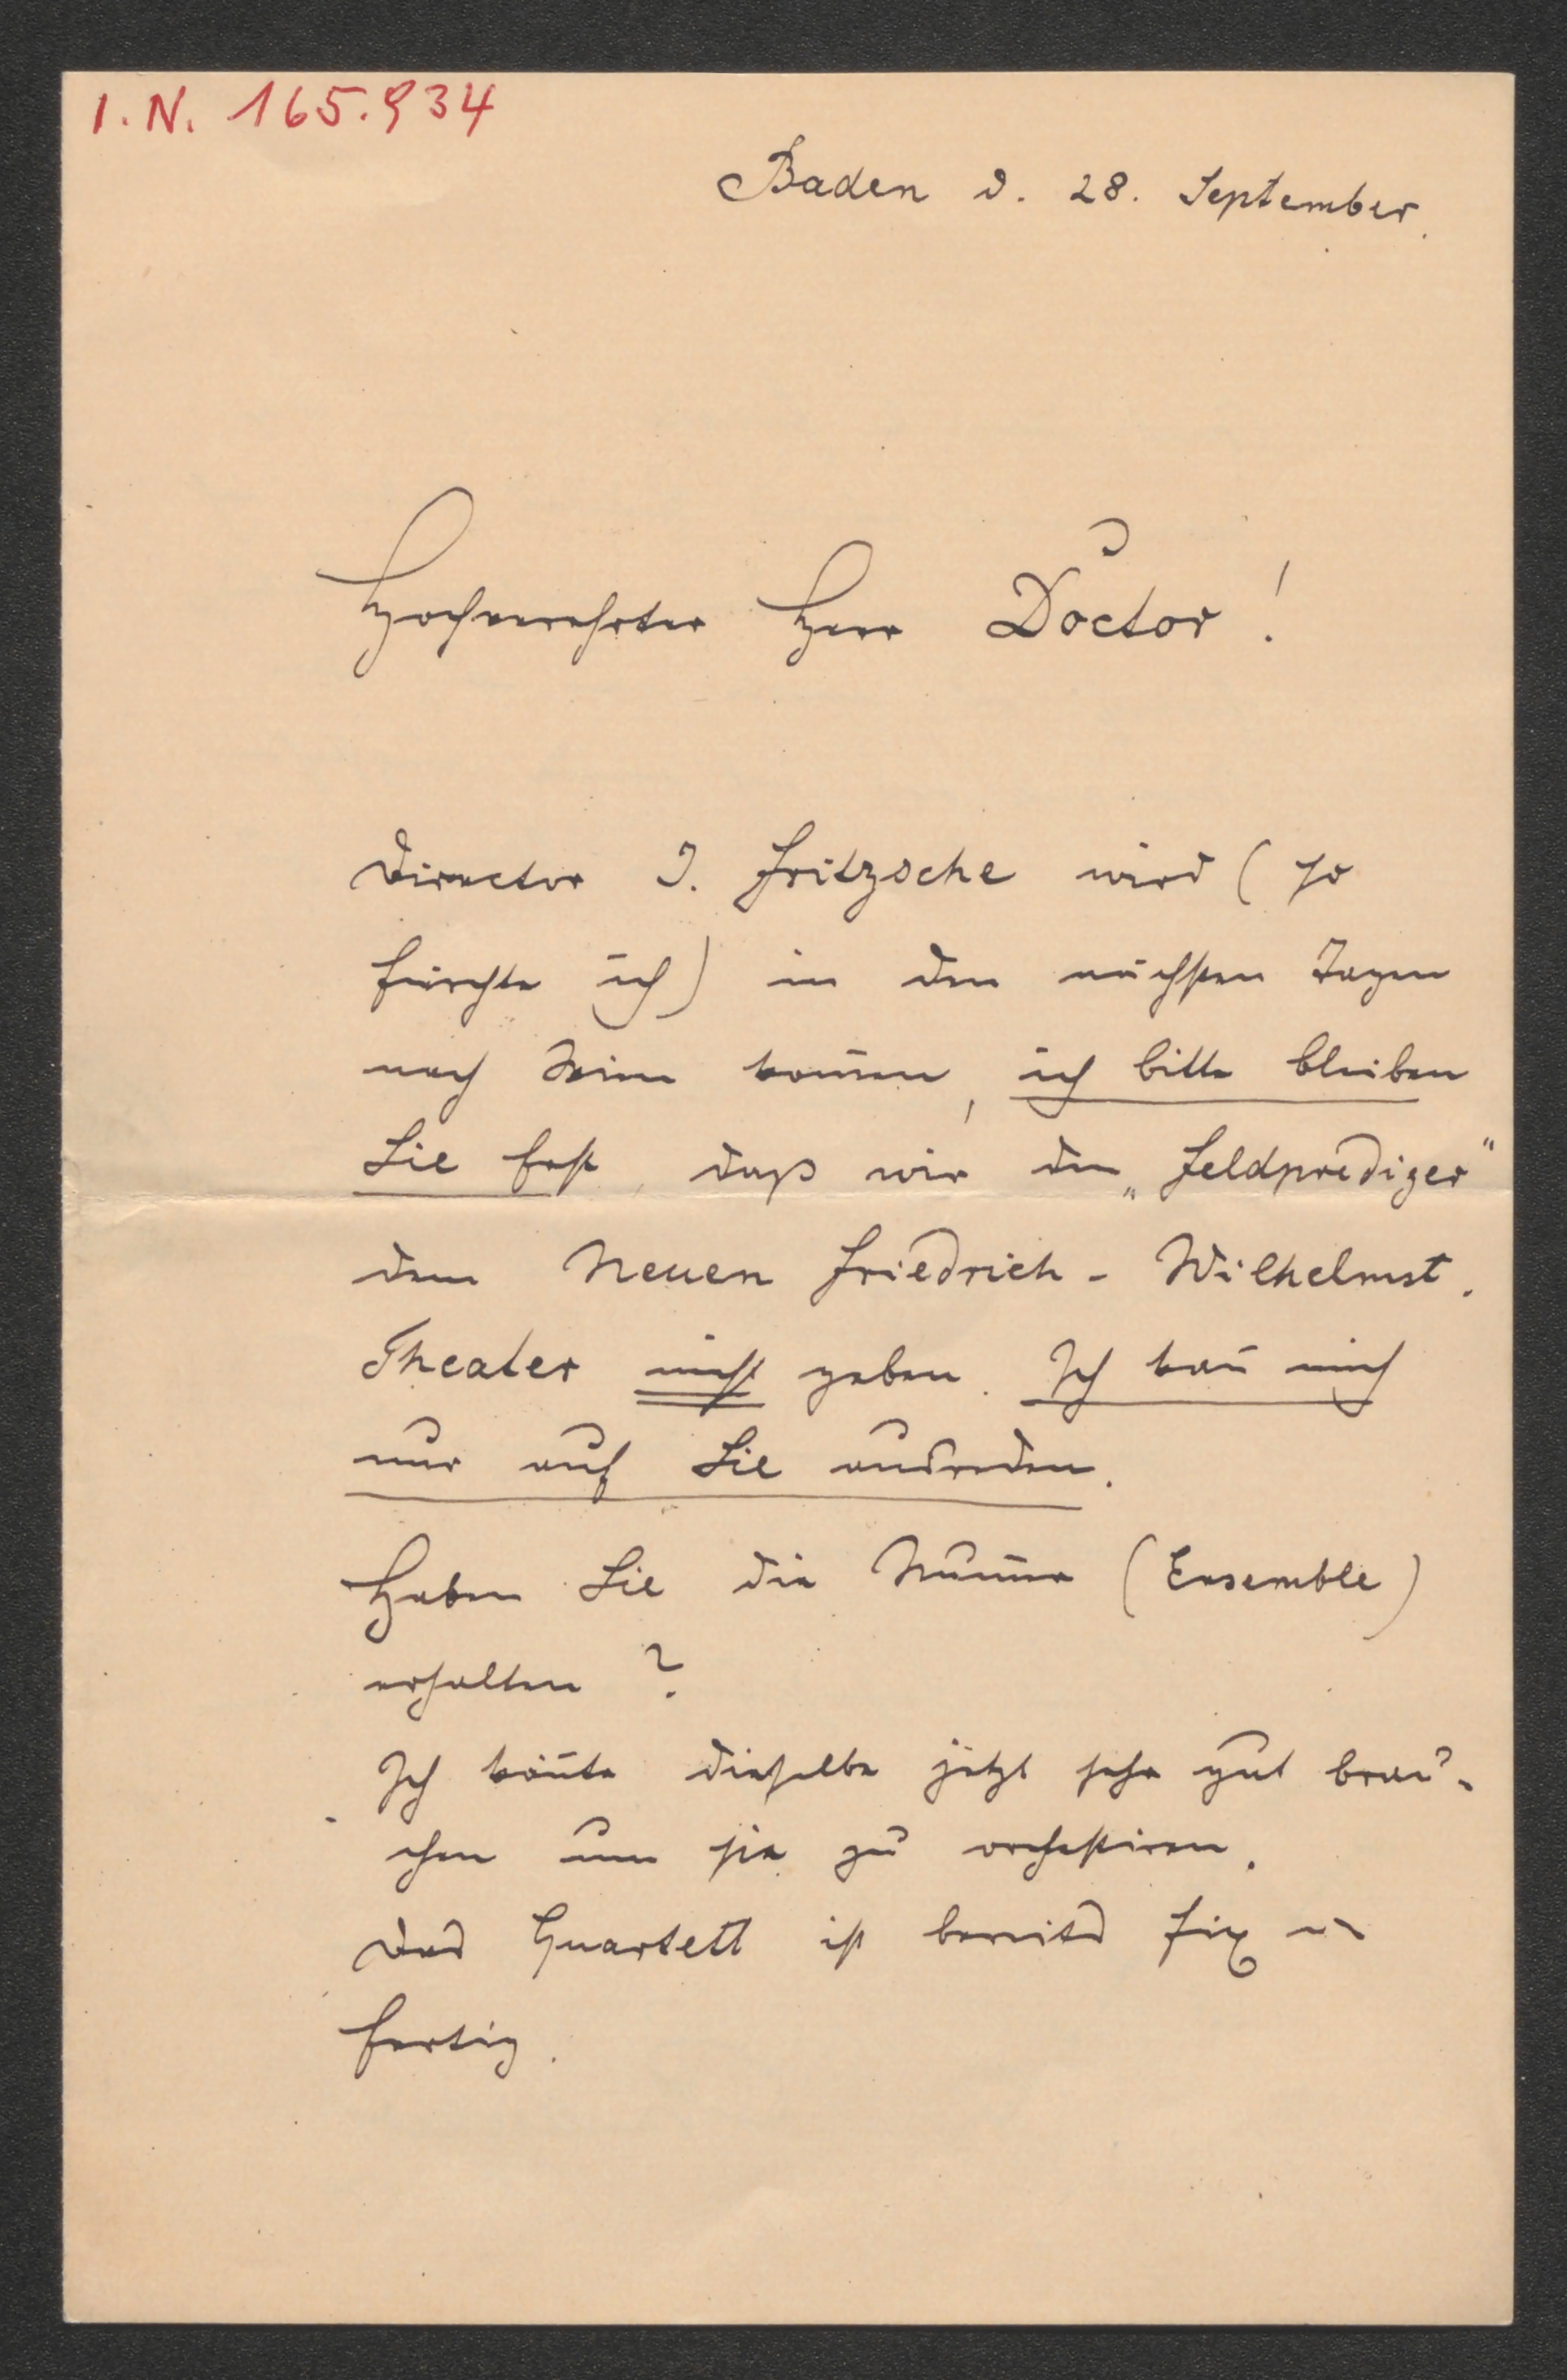 I.N. 165.934
Baden d. 28. September.
Hochverehrter Herr Doctor!
Director J. Fritzsche wird (so
fürchte ich) in den nächsten Tagen
nach Wien kom̅en, ich bitte bleiben
Sie fest, daß wir den „Feldprediger"
dem Neuen Friedrich-Wilhelmst.
Theater nicht geben. Ich kan̅ mich
nur auf Sie ausreden.
Haben Sie die Num̅er (Ensemble)
erhalten?
Ich kön̅te dieselbe jetzt sehr gut brau-
chen um sie zu orchestiren.
Das Quartett ist bereits fix u
fertig.